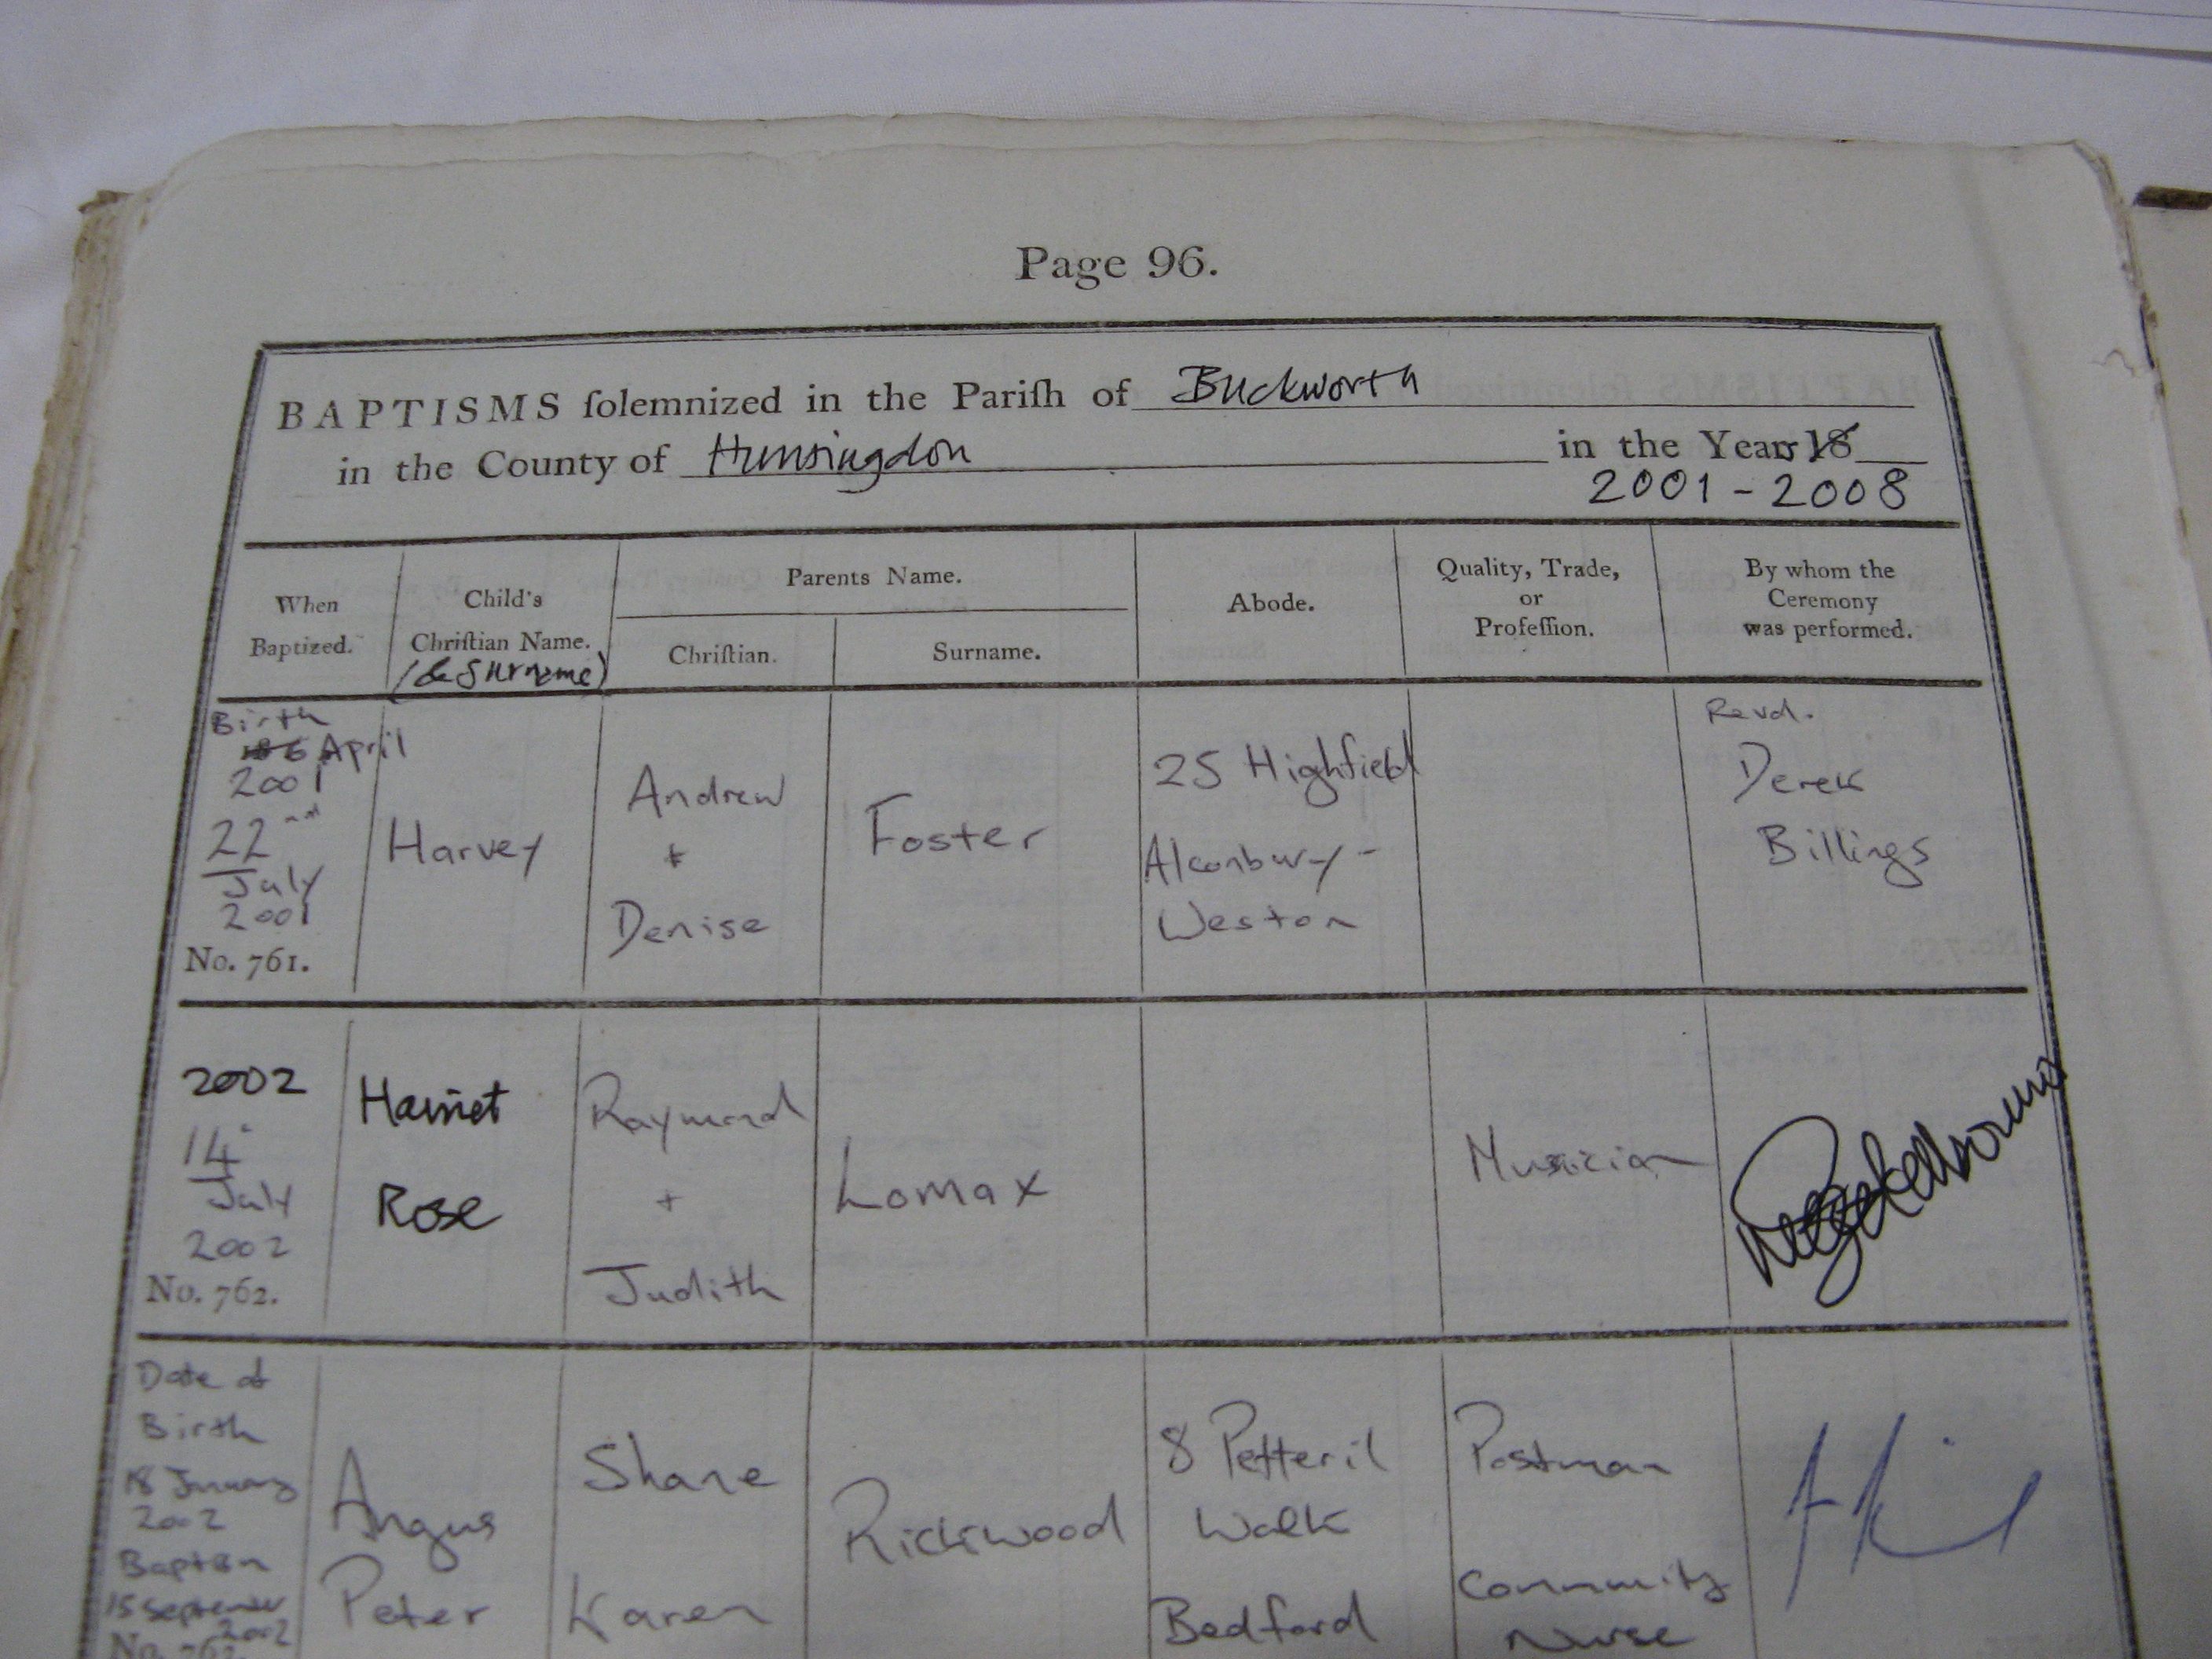 Page 96.
BAPTISMS ſolemnized in the Pariſh of Buckworth
in the County of Hunsingdon in the Years 18
2001 - 2008
When
Baptized.
Child's
Chriſtian Name.
(& Surname)
Parents Name.
Chriſtian.
Surname.
Abode.
Quality, Trade,
or
Profeſſion.
By whom the
Ceremony
was performed.
Birth
6 April
2001
22nd
July
2001
No. 761.
Harvey
Andrew
+
Denise
Foster
25 Highfield
Alconbury-
Weston
Revd.
Derek
Billings
2002
14
July
2002
No. 762.
Harriet
Rose
Raymond
+
Judith
Lomax
Musician
Date of
Birth
18 January
2002
Baptism
15 September
2002
No. 763.
Angus
Peter
Shane
Karen
Rickwood
8 Petteril
Walk
Bedford
Postman
Community
Nurse